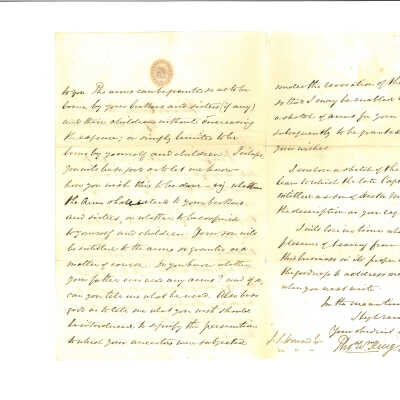 to you. The arms can be granted so as to be
borne by your brothers and sisters (if any)
and their children without increasing
the expence; or simply limited to be
borne by yourself and children. Perhaps
you will be so good as to let me know
how you wish this to be done - viz. whether
the Arms shall extend to your brothers
and sisters, or whether to be confined
to yourself and children. Your son will
be entitled to the arms so granted as a
matter of course. Do you know whether
your father ever used any arms? and if so,
can you tell me what he used. Also be so
good as to let me what you wish should
be introduced to signify the persecution
to which your ancestors were subjected
under the revocation of the
so that I may be enabled
a sketch of arms for your
subsequently to be granted
your wishes
I enclose a sketch of the
bear to which the late Cap
entitled as some
the description on your cap
I will be in town when
pleasure of hearing from
this business in its proper
the goodness to address me
when you next write.
In the meantime
I remain
Your obedient
Thos. W. King